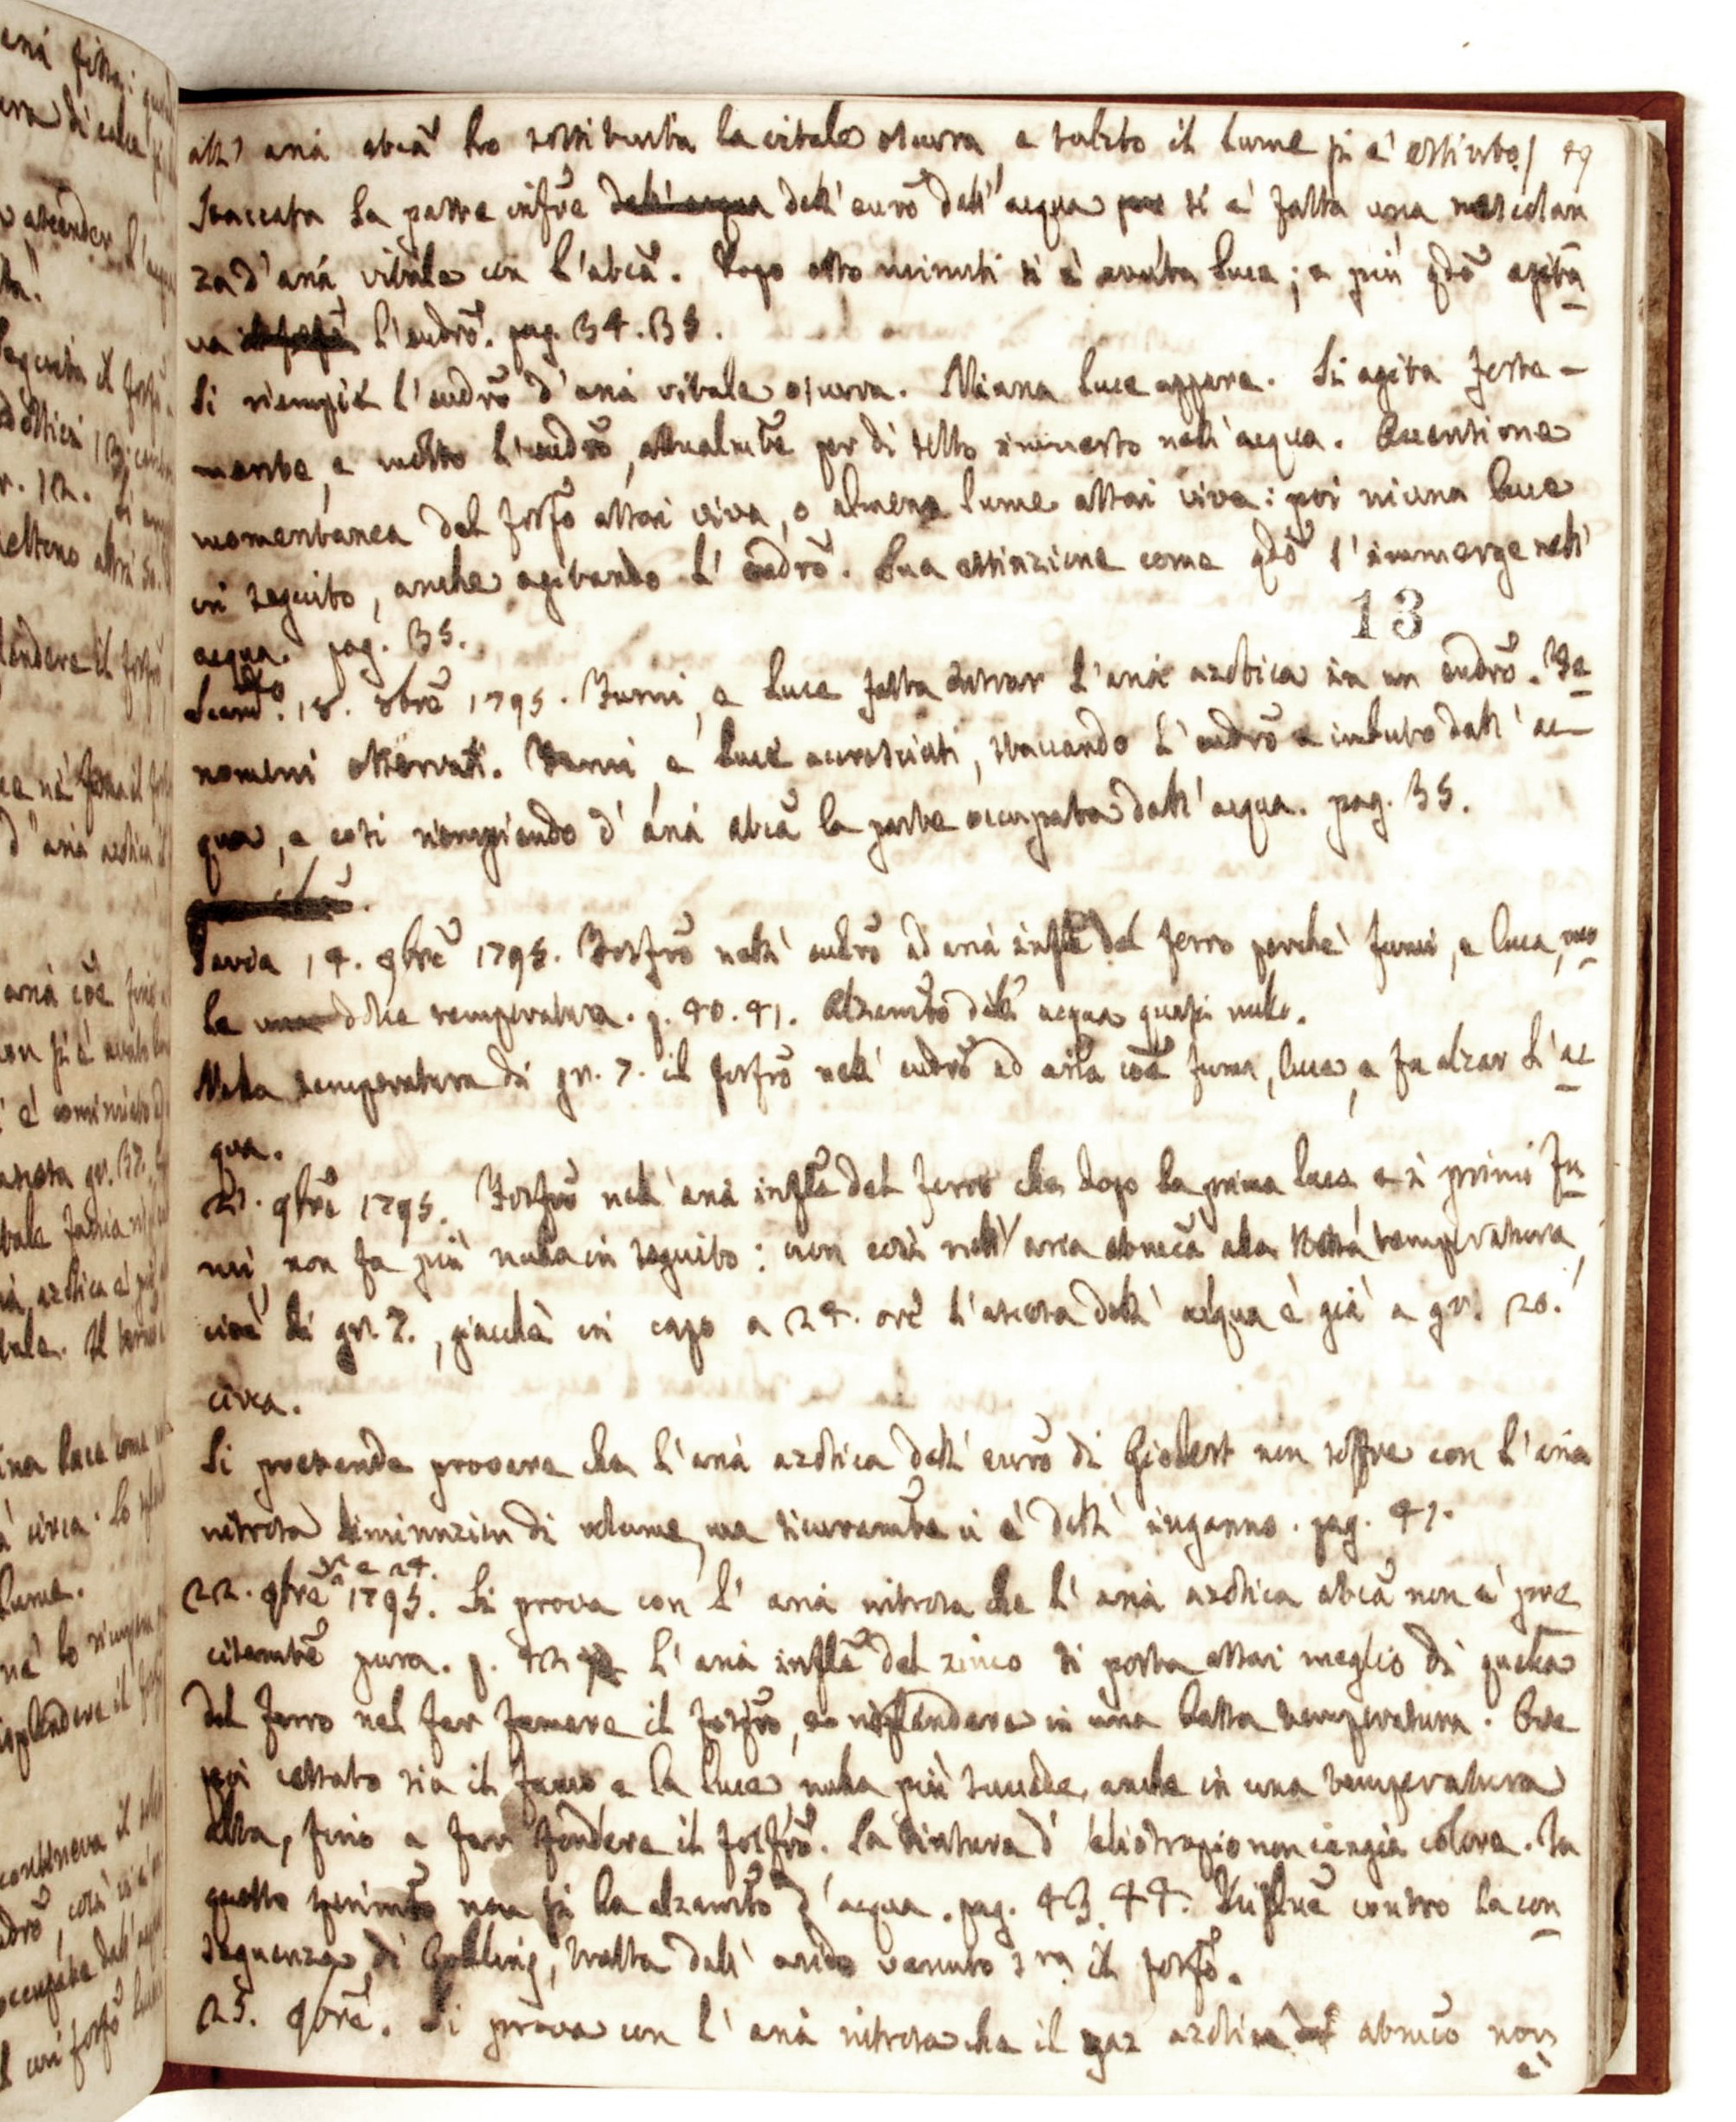 all' aria atm̃a ho sostituita la vitale oscura, e subito il lume si è estinto. 49
Staccata la parte infr̃e dell'acqua dell'eudrõ dall'acqua si è fatta una mescolan
za d'aria vitale con l'atm̃a. Dopo otto minuti si è avuta luce; e più qdõ agita
va l'eudrõ. pag. 34. 35.
Si riempie l'eudrõ d'aria vitale oscura. Niuna luce appare. Si agita forte-
mente, e molto l'eudrõ, attualmte per di sotto immerso nell'acqua. Accensione
momentanea del fosfõ assai viva, o almeno lume assai vivo: poi niuna luce
in seguito, anche agitando l'eudrõ. Sua estinzione come qdõ s'immerge nell'
13
acqua. pag. 35.
Scand. 18. 8bre 1795. Fumi, e luce fatta entrar l'aria azotica in un eudrõ. Fe
nomeni osservati. Fumi, e luce accresciuti, staccando l'eudrõ e imbuto dall'ac-
qua, e così riempiendo d'aria atm̃a la parte occupata dall'acqua. pag. 35.
Pavia, 14. 9bre 1795. Fosfrõ nell'eudrõ ad aria inflẽ del ferro perchè fumi, e luca, vuo
le dolce temperatura. p. 40. 41. Alzamtõ dell'acqua quasi nullo.
Nella temperatura di gr. 7. il fosfrõ nell'eudrõ ad aria cõe fuma, luce, e fa alzar l'ac
qua.
21. 9bre 1795. Fosfrõ nell'aria inflẽ del ferro che dopo la prima luce, e i primi fu
mi, non fa più nulla in seguito: non così nell'aria atmcã alla stessa temperatura,
cioè di gr. 7., giacchè in capo a 24. ore l'ascesa dell'acqua è già a gr. 20.
circa.
Si pretende provare che l'aria azotica dell'eudrõ di Giobert non soffre con l'aria
nitrosa diminuzion di volume, ma sicuramte vi è dell'inganno. pag. 41.
e 24.
22. 9bre 1795. Si prova con l'aria nitrosa che l'aria azotica atm̃a non è pre
cisamte pura. p. 42 L'aria inflẽ del zinco si porta assai meglio di quella
del ferro nel far fumare il fosfrõ, e risplendere in una bassa temperatura. Ove
poi cessato sia il fumo e la luce, nulla più succede, anche in una temperatura
alta, fino a far fondere il fosfrõ. La tintura d'eliotropio non cangia colore. In
questo sperimtõ non si ha alzamtõ d'acqua. pag. 43. 44. contro la con
seguenza di Gottling, tratta dall'acido venuto il fosfõ.
25. 9bre. Si prova con l'aria nitrosa che il gaz azotico atmcõ non
è